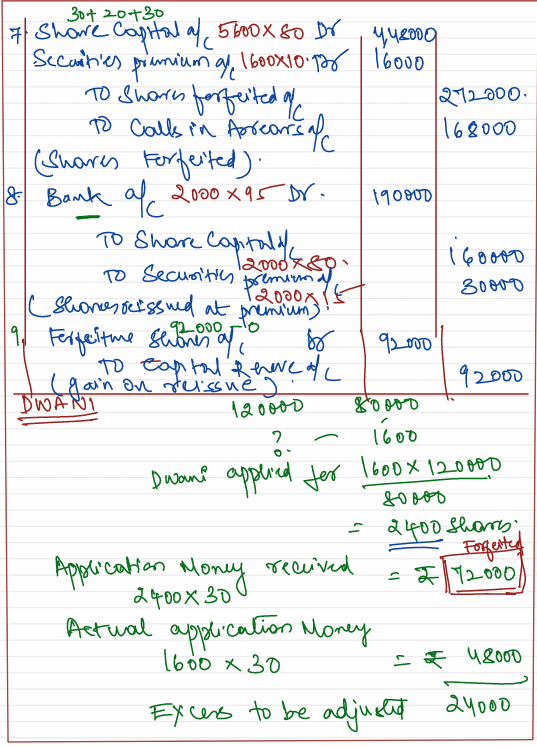 30+20+30
7. Share Capital a/c 5600×80 Dr 448000
Securities premium a/c 1600×10. Dr 16000
TO Shares forfeited a/c 272000.
TO Calls in Arrears a/c 168000
(Shares Forfeited).
8 Bank a/c 2000×95 Dr. 190000
TO Share Capital a/c 2000×80. 160000
TO Securities premium a/c 2000×15 30000
(Shares reissued at premium).
92000-0
9. Forfeiture Shares a/c Dr 92000
TO Capital Reserve a/c 92000
(gain on reissue).
DWANI 120000 80000
? — 1600
Dwani applied for 1600×120000
80000
= 2400 Shares.
Forfeited
Application Money received = ₹ 72000
2400×30
Actual application Money
1600 × 30 = ₹ 48000
Excess to be adjusted 24000